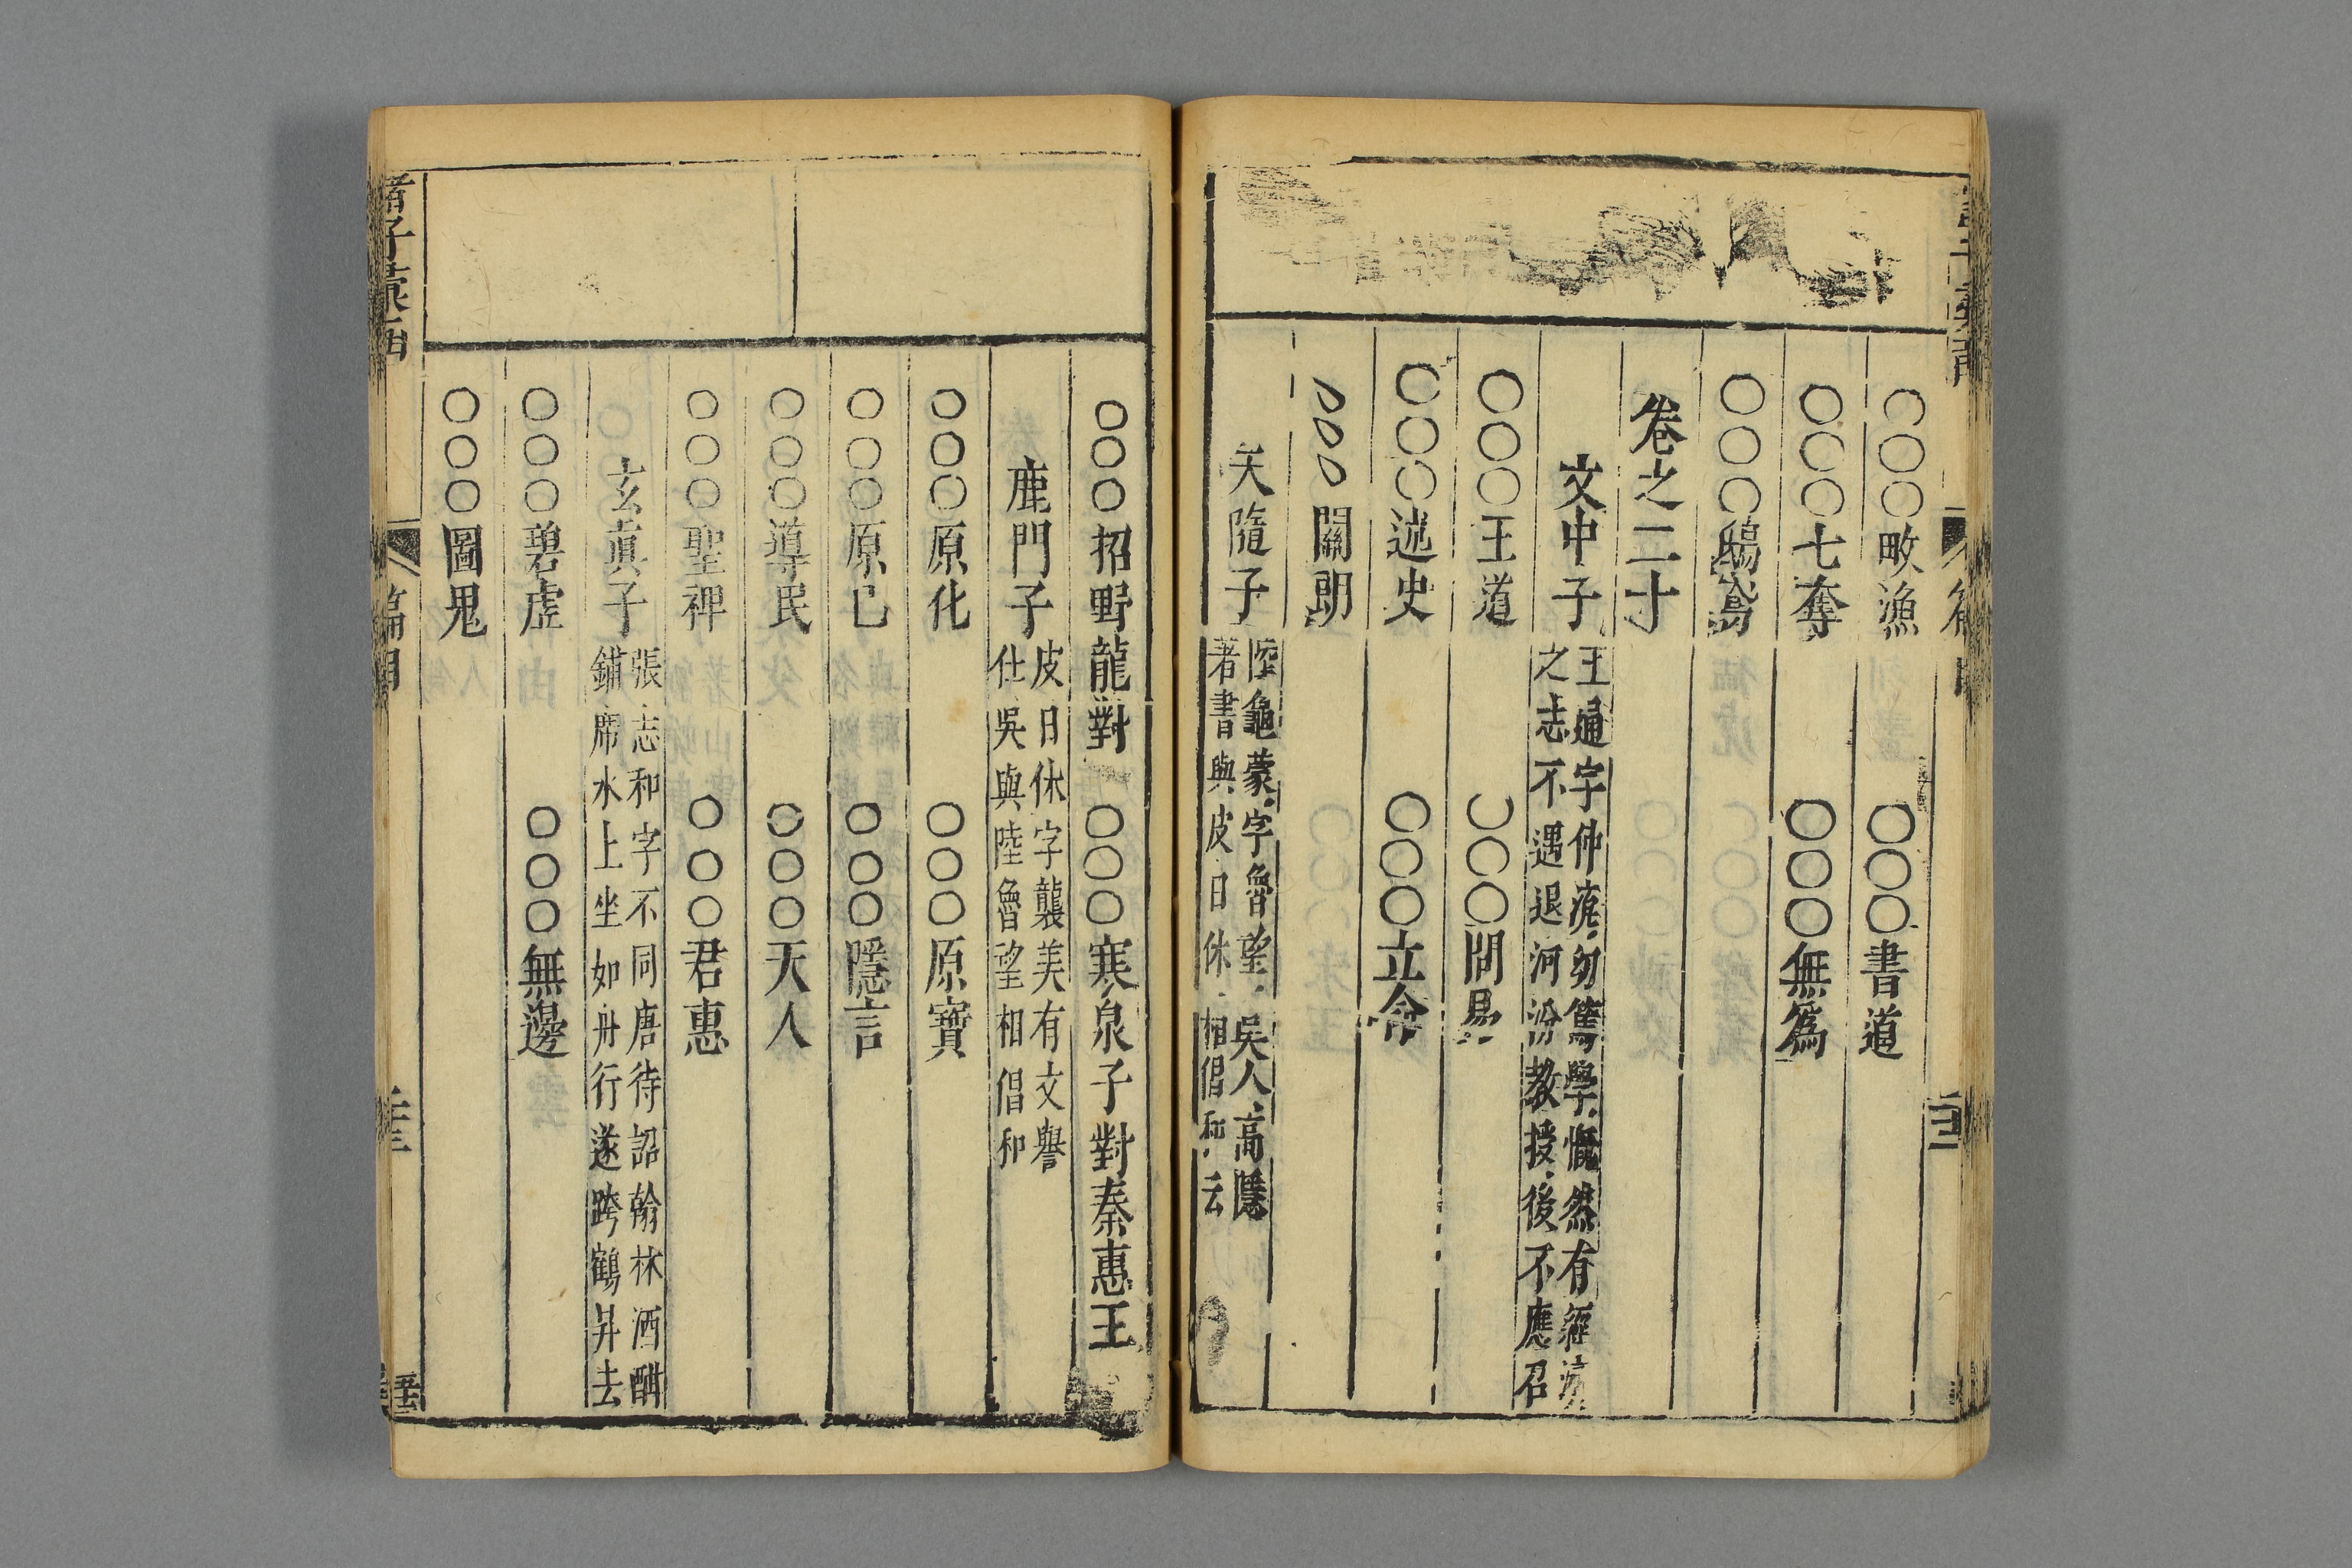 ○○○畋漁　○○○書道
○○○七奪　○○○無爲
○○○鴟鳶
卷之二十
文中子
王通字仲淹幼篤學慨然有經濟
之志不遇退河汾教授後不應召
○○○王道　○○○問易
○○○述史　○○○立命
○○○關朗
天隨子
陸龜蒙字魯望吳人高隱
著書與皮日休相倡和云
○○○招野龍對　○○○寒泉子對秦惠王
鹿門子
皮日休字襲美有文譽
仕吳與陸魯望相倡和
○○○原化　○○○原寶
○○○原己　○○○隱言
○○○導民　○○○天人
○○○聖裡　○○○君惠
玄眞子
張志和字不同唐待詔翰林酒酣
鋪席水上坐如舟行遂跨鶴昇去
○○○碧虛　○○○無邊
○○○圖鬼
諸子彙函
篇目